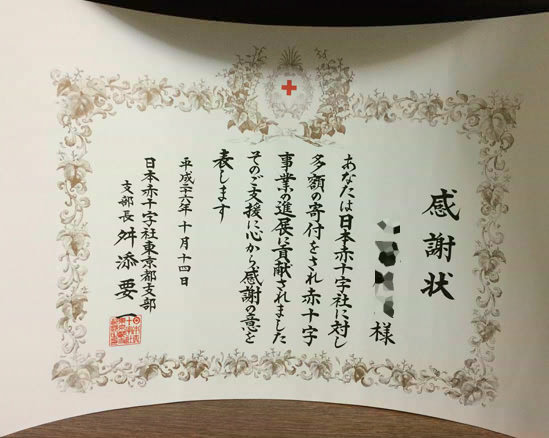 感謝状
様
あなたは日本赤十字社に対し
多額の寄付をされ赤十字
事業の進展に貢献されました
そのご支援に心から感謝の意を
表します
平成二十六年十月十四日
日本赤十字社東京都支部
支部長 舛添要一